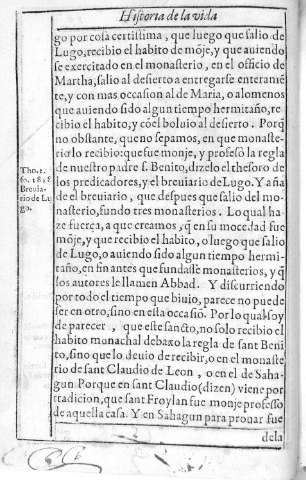 Historia de la vida
go por cosa certissima, que luego que salio de
Lugo, recibio el habito de mõje, y que auiendo
se exercitado en el monasterio, en el officio de
Martha, salio al desierto a entregarse enteramẽ
te, y con mas occasion al de Maria, o alomenos
que auiendo sido algun tiempo hermitaño, re
cibio el habito, y cõ el boluio al desierto. Porq̃
no obstante, que no sepamos, en que monaste-
rio lo recibio: que fue monje, y professó la regla
de nuestro padre s. Benito, dizelo el thesoro de
los predicadores, y el breuiario de Lugo. Y aña
de el breuiario, que despues que salio del mo-
nasterio, fundo tres monasterios. Lo qual ha-
ze fuerça, a que creamos, q̃ en su mocedad fue
mõje, y que recibio el habito, o luego que salio
de Lugo, o auiendo sido algun tiempo hermi-
taño, en fin antes que fundasse monasterios, y q̃
los autores le llamen Abbad. Y discurriendo
por todo el tiempo que biuio, parece no puede
ser en otro, sino en esta occasiõ. Por lo qual soy
de parecer, que este sancto, no solo recibio el
habito monachal debaxo la regla de sant Beni
to, sino que lo deuio de recibir, o en el monaste
rio de sant Claudio de Leon, o en el de Saha-
gun. Porque en sant Claudio (dizen) viene por
tradicion, que sant Froylan fue monje professo
de aquella casa. Y en Sahagun para prouar fue
dela
Breuia-
rio de Lu
go.